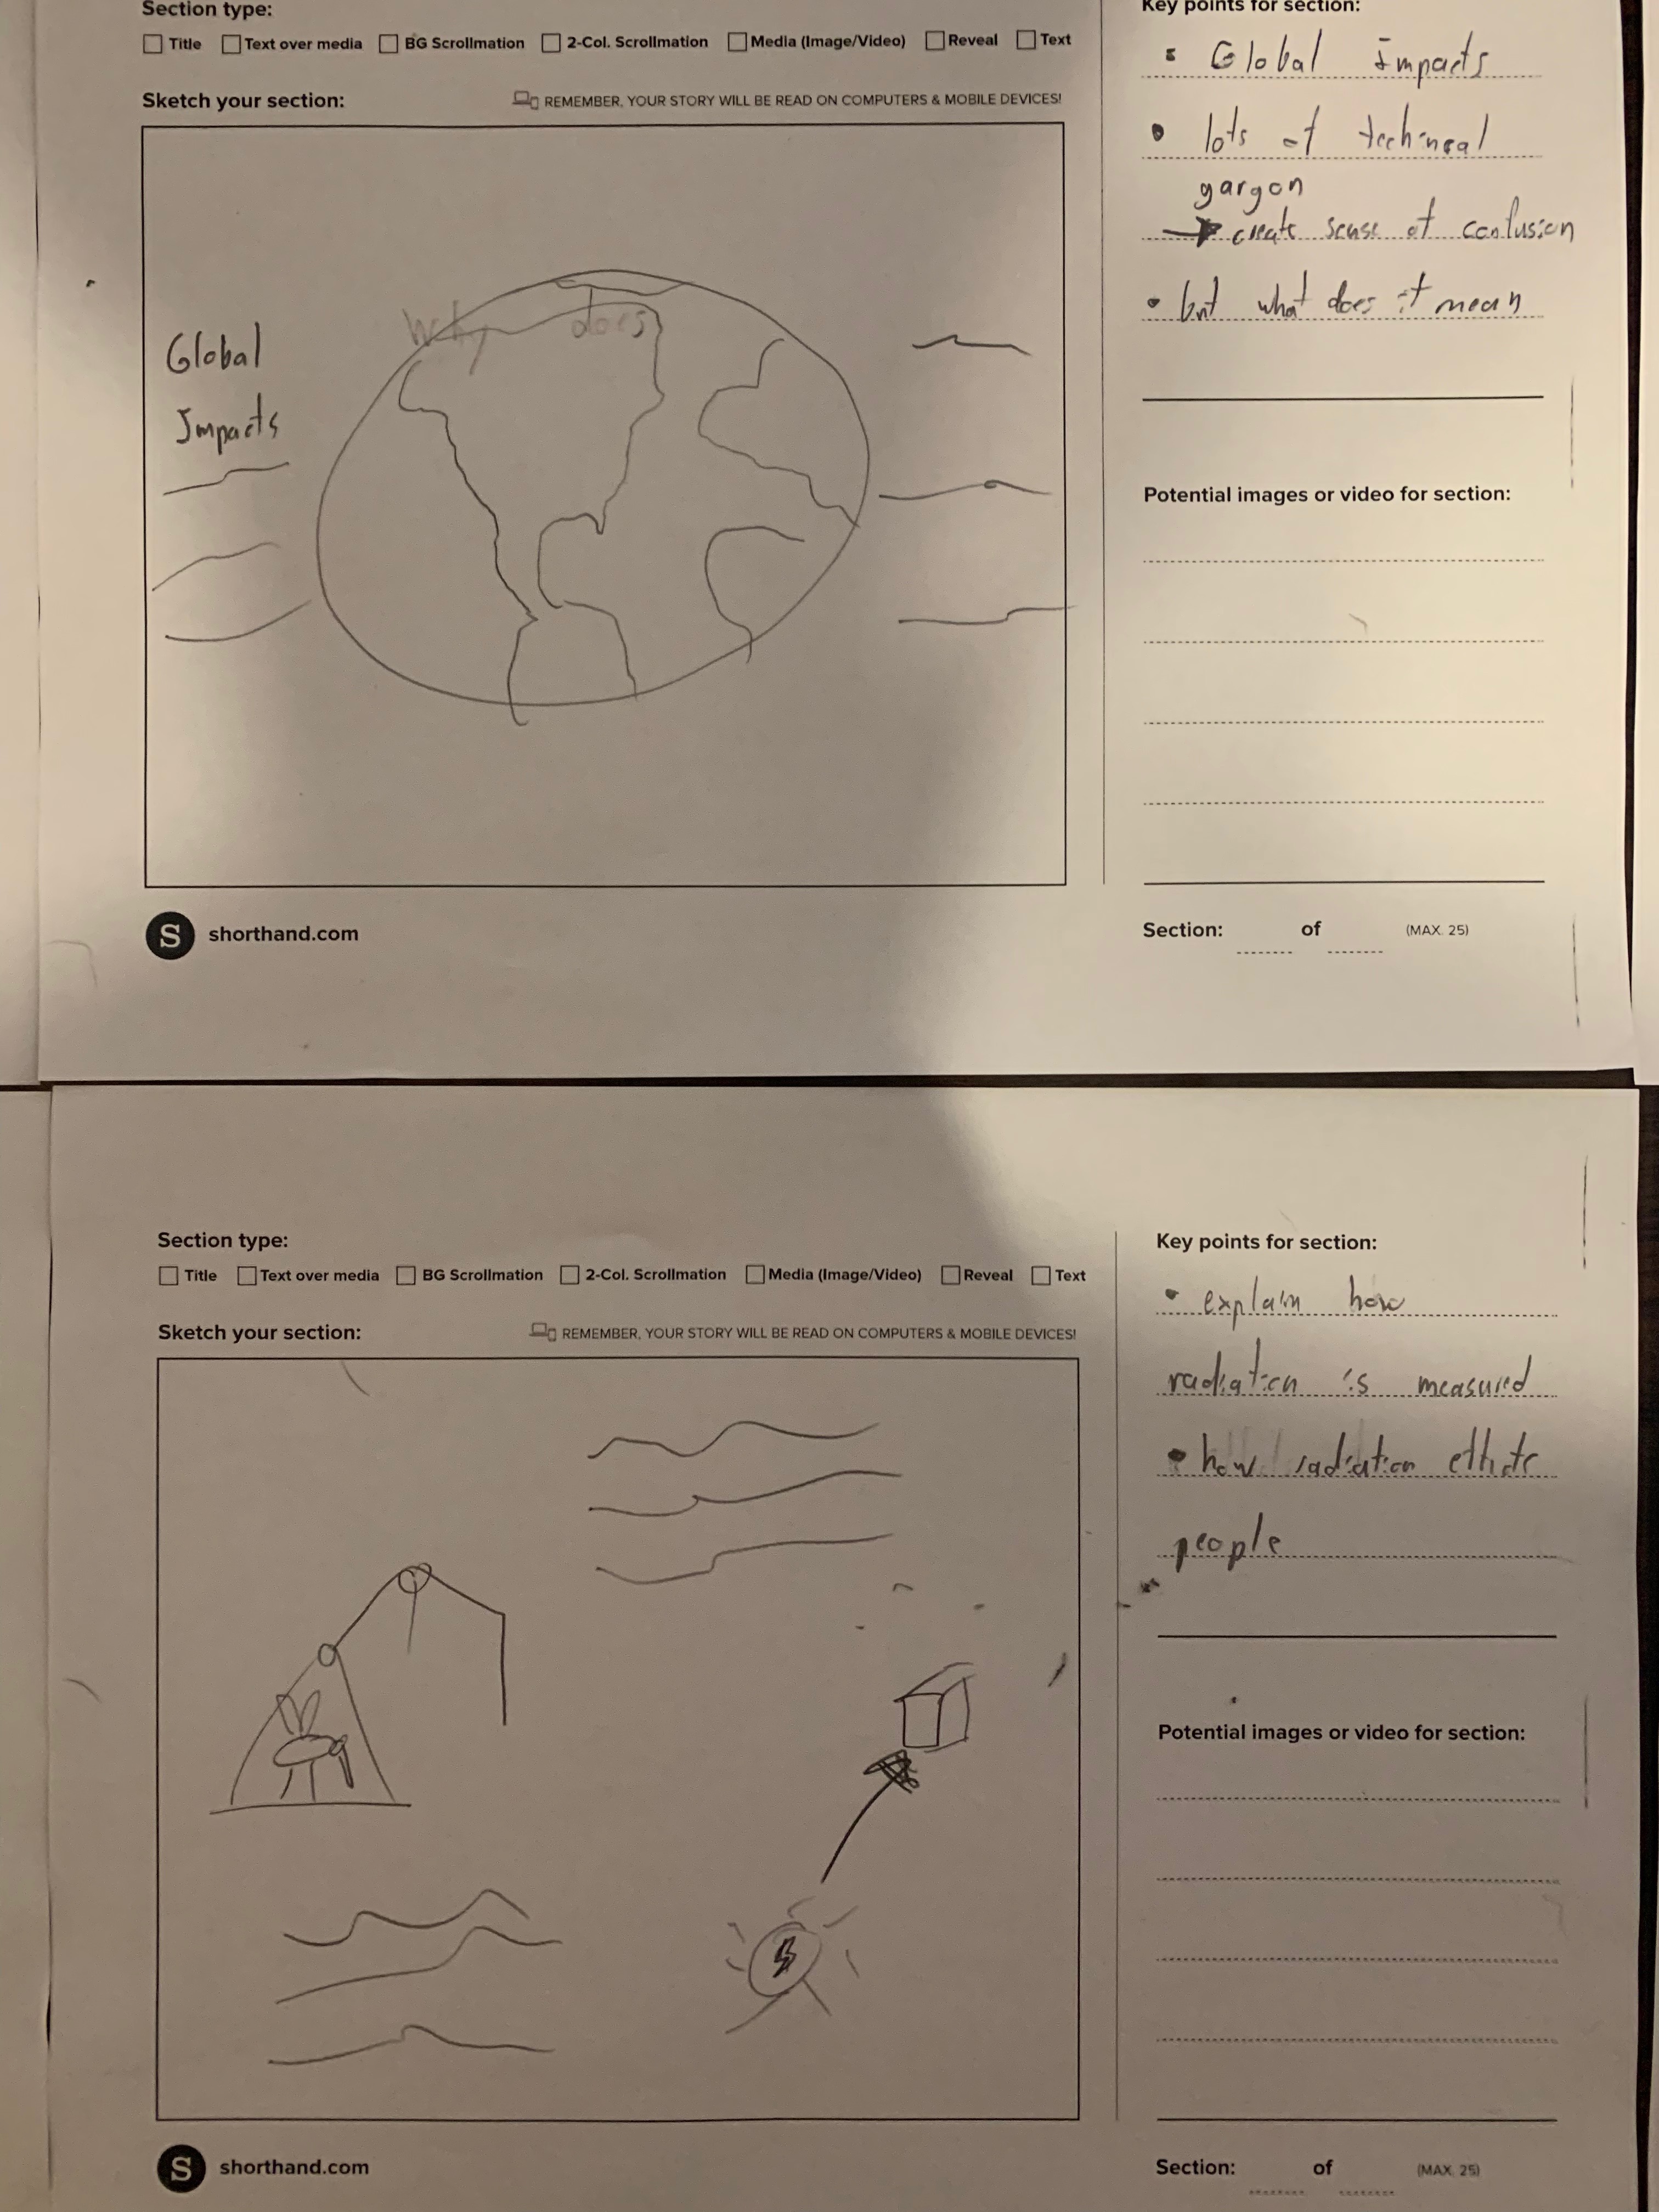 Section type:
Title Text over media BG Scrollmation 2-Col. Scrollmation Media (Image/Video) Reveal Text
Sketch your section: REMEMBER, YOUR STORY WILL BE READ ON COMPUTERS & MOBILE DEVICES!
Why does
Global
Impacts
Key points for section:
Global Impacts
lots of techincal
gargon
→ create sense of confusion
but what does it mean
Potential images or video for section:
S shorthand.com
Section: of (MAX. 25)
Section type:
Title Text over media BG Scrollmation 2-Col. Scrollmation Media (Image/Video) Reveal Text
Sketch your section: REMEMBER, YOUR STORY WILL BE READ ON COMPUTERS & MOBILE DEVICES!
Key points for section:
• explain how
radiation is measured
• how radiation
people
Potential images or video for section:
S shorthand.com
Section: of (MAX. 25)